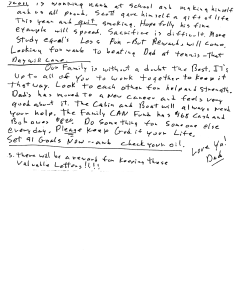 is working hard at School and making himself
and us all proud. Scott gave himself a gift of life
This year and quit smoking. Hopefully his fine
example will spread. Sacrifice is difficult. More
Study equal's Less Fun - But Rewards will come.
Looking for ward to beating Dad at tennis - That
Day will Come
Our Family is without a doubt the Best. It's
Up to all of you to work together to keep it
that way. Look to each other for help and strength.
Dad's has moved to a new career and feels very
good about it. The Cabin and Boat will always need
your help. The Family CAN Funk has $68 Cash and
Bob owes. Do Something for Someone else
everyday. Please keep God in your Life.
Set 91 Goals Now -- and check your oil.
Love Ya!
Dad
S. there will be a reward for keeping these
Valuable Letters!!!!